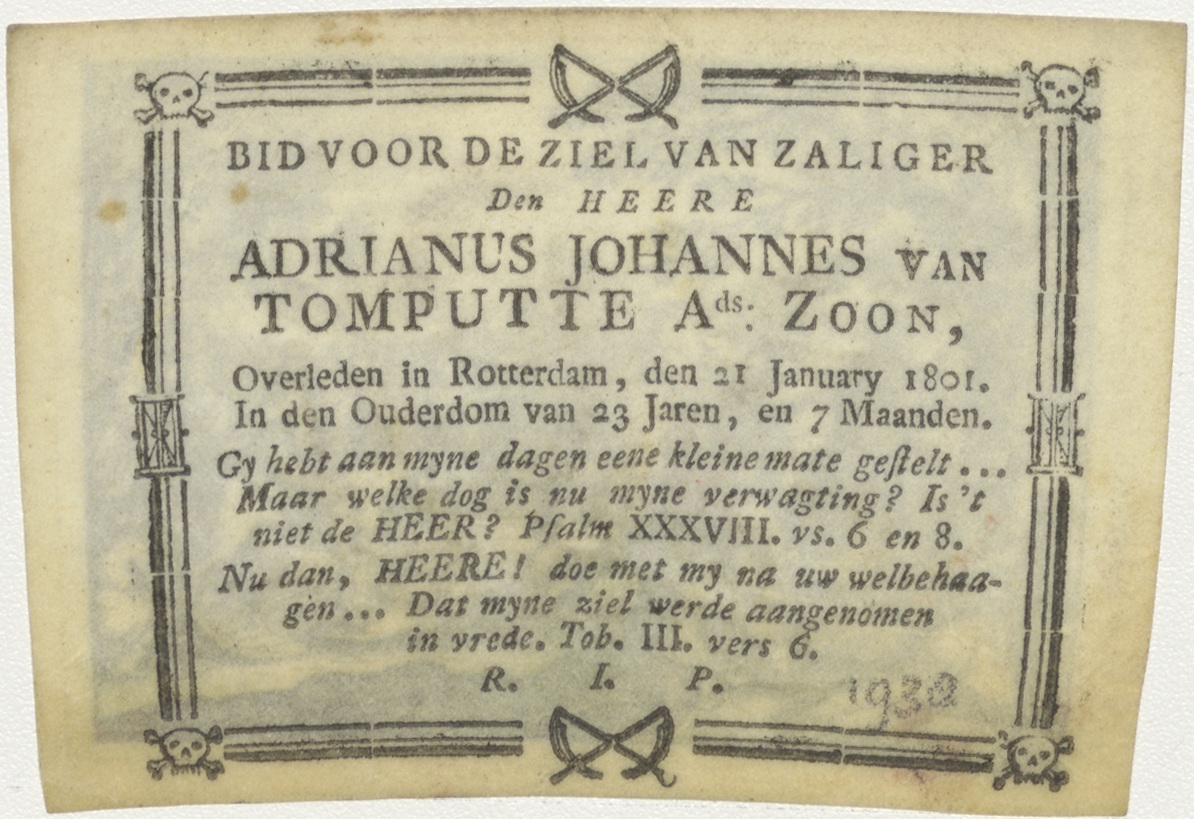 BID VOOR DE ZIEL VAN ZALIGER
Den HEERE
ADRIANUS JOHANNES VAN
TOMPUTTE Ads: ZOON,
Overleden in Rotterdam, den 21 January 1801.
In den Ouderdom van 23 Jaren, en 7 Maanden.
Gy hebt aan myne dagen eene kleine mate geſtelt...
Maar welke dog is nu myne verwagting? Is 't
niet de HEER? Pſalm XXXVIII. vs. 6 en 8.
Nu dan, HEERE! doe met my na uw welbehaa-
gen... Dat myne ziel werde aangenomen
in vrede. Tob. III. vers 6.
R. I. P.